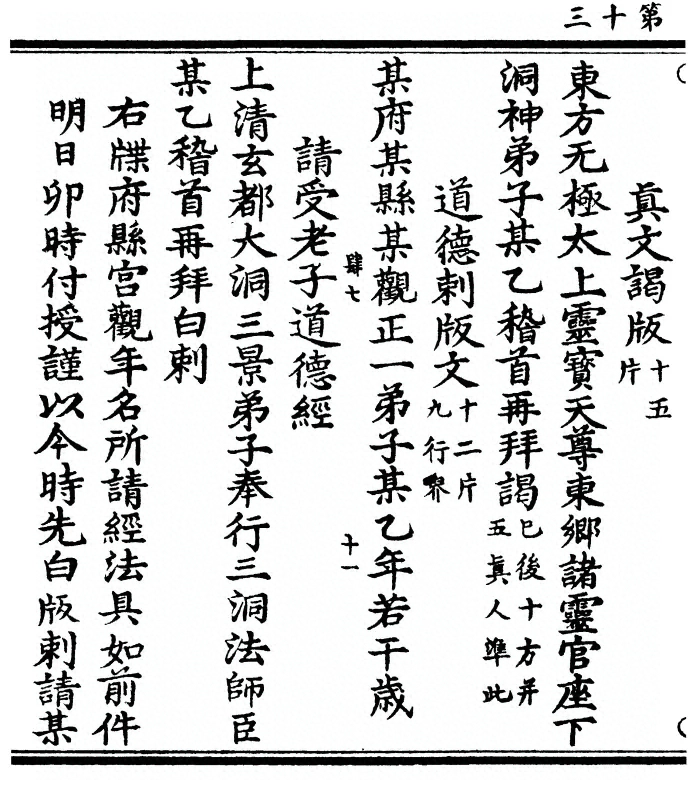 第十三
眞文謁版十五片
東方无極太上靈寶天尊東鄉諸靈官座下
洞神弟子某乙稽首再拜謁巳後十方并五眞人準此
道德刺版文十二片九行界
某府某縣某觀正一弟子某乙年若干歲
肆七
十一
請受老子道德經
上清玄都大洞三景弟子奉行三洞法師臣
某乙稽首再拜白刺
右牒府縣宮觀年名所請經法具如前件
明日卯時付授謹以今時先白版刺請某